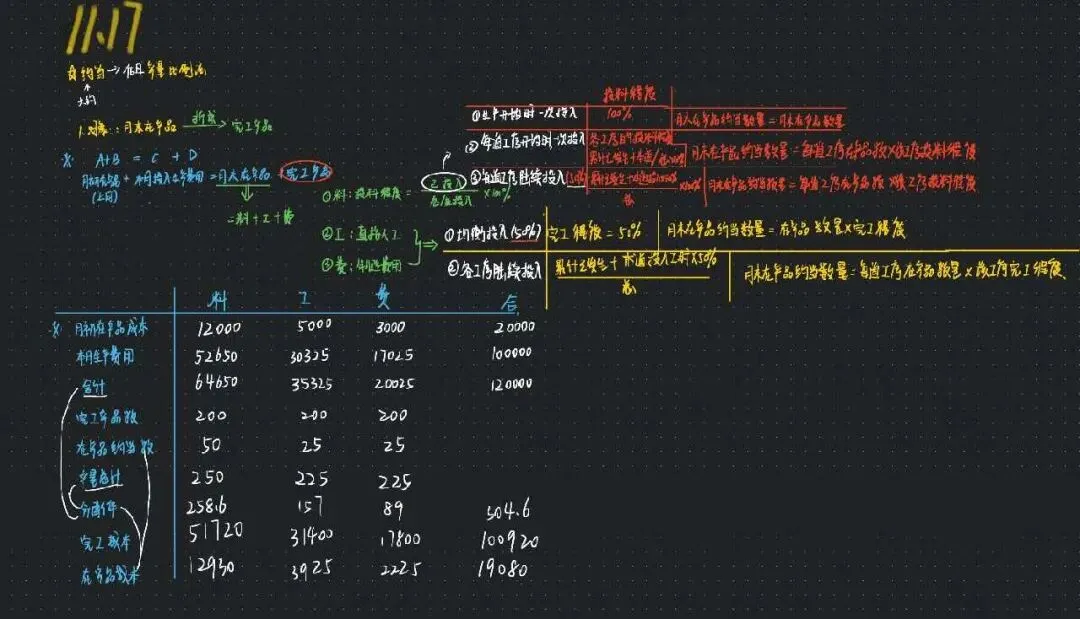 11.17
约当→在产量比例法
大约
1.对象:月末在产品 折成→ 完工产品
※ A+B = C + D
月初在产品 + 本月投入生产费用 = 月末在产品 + 完工产品
(上月)
=料+工+费
投料程度
①生产开始时一次投入 100% 月末在产品约当数量=月末在产品数量
②每道工序开始时一次投入 月末在产品约当数量=每道工序在产品数×该工序投料程度
③每道工序陆续投入 ×100% 月末在产品约当数量=每道工序在产品数×该工序投料程度
①料:投料程度=已投入/总应投入×100%
②工:直接人工
③费:制造费用
⇒ ①均衡投入(50%) 完工程度=50% 月末在产品约当数量=在产品数量×完工程度
②各工序陆续投入 累计已发生+本道投入工时×50%/总 月末在产品约当数量=每道工序在产品数量×该工序完工程度
料 工 费 合
※ 月初在产品成本 12000 5000 3000 20000
本月生产费用 52650 30325 17025 100000
合计 64650 35325 20025 120000
完工产品数 200 200 200
在产品约当数 50 25 25
产量总计 250 225 225
分配率 258.6 157 89 504.6
完工成本 51720 31400 17800 100920
在产品成本 12930 3925 2225 19080